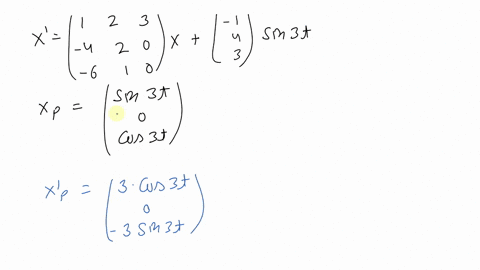 X' = ( 1 2 3 ; -4 2 0 ; -6 1 0 ) X + ( -1 ; 4 ; 3 ) Sin 3t
Xp = ( Sin 3t ; 0 ; Cos 3t )
X'p = ( 3·Cos 3t ; 0 ; -3 Sin 3t )